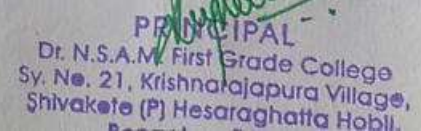 PRINCIPAL
Dr. N.S.A.M. First Grade College
Sy. No. 21, Krishnarajapura Village,
Shivakote (P) Hesaraghatta Hobli,